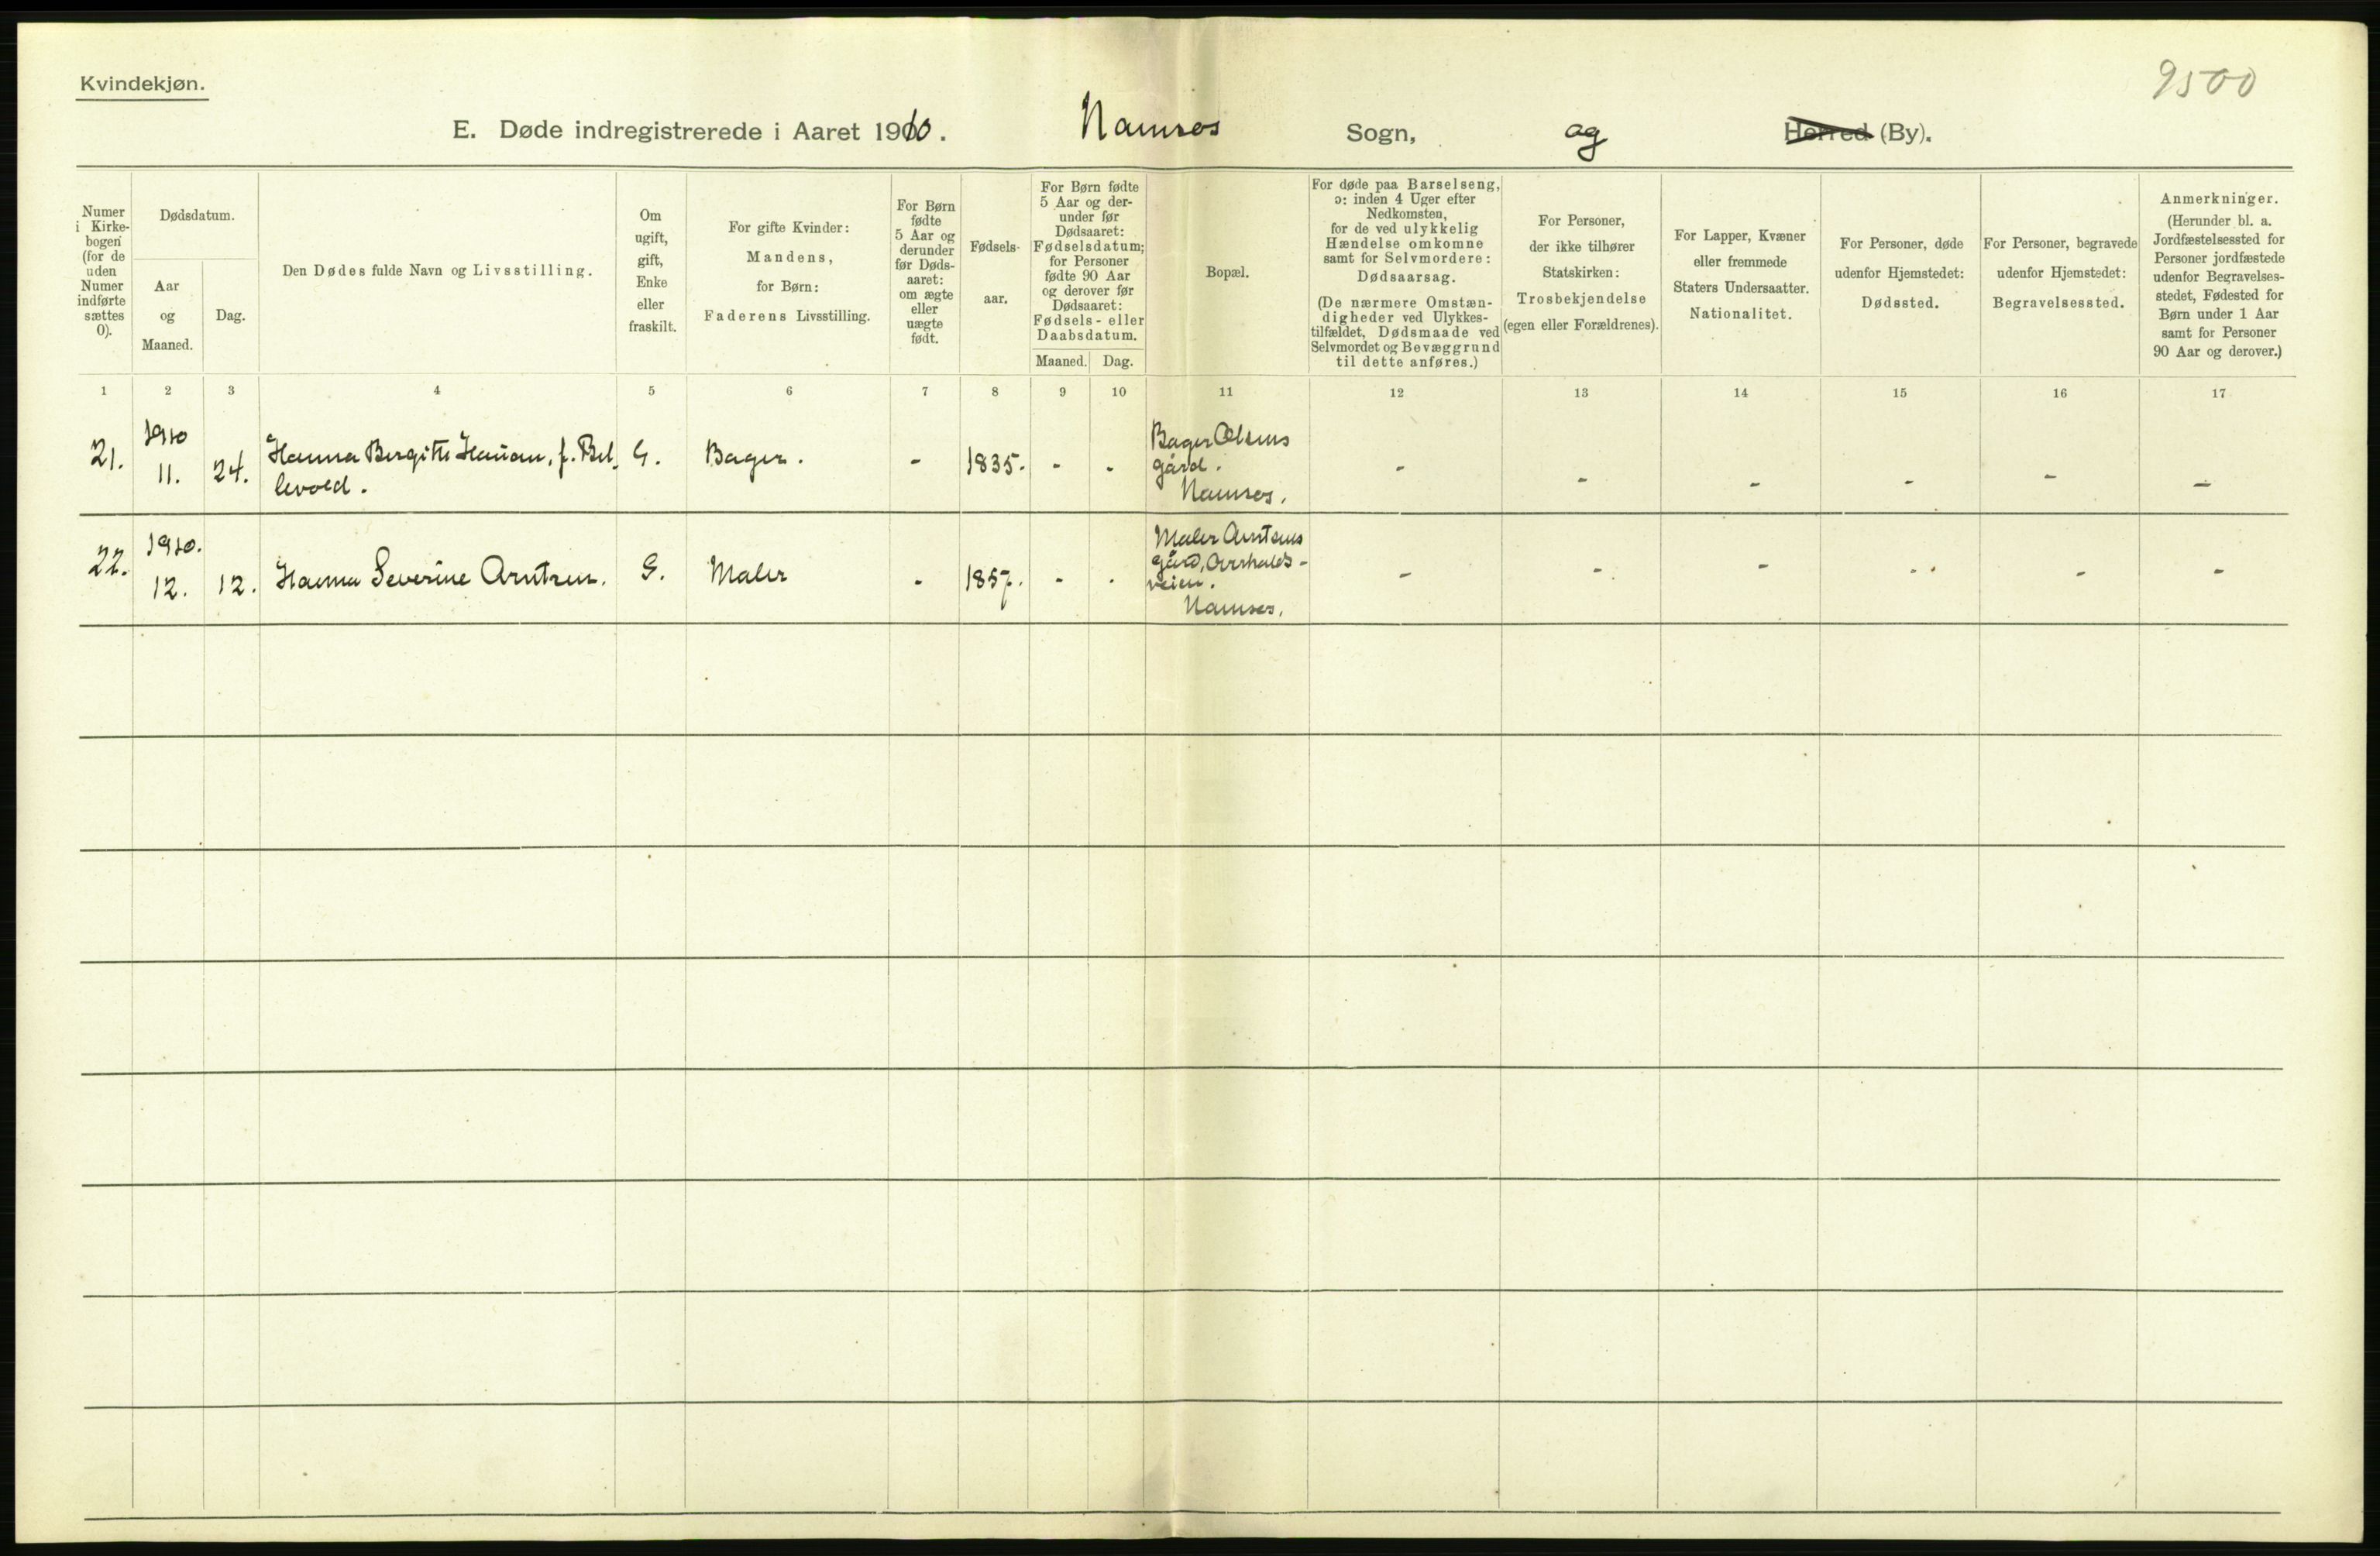 Kvindekjøn.
9500
E. Døde indregistrerede i Aaret 1910. Namsos Sogn, og Herred (By).
Numer i Kirke-bogen (for de uden Numer indførte sættes 0).
Dødsdatum.
Aar og Maaned.
Dag.
Den Dødes fulde Navn og Livsstilling.
Om ugift, gift, Enke eller fraskilt.
For gifte Kvinder: Mandens, for Børn: Faderens Livsstilling.
For Børn fødte 5 Aar og derunder før Døds-aaret: om ægte eller uægte født.
Fødsels-aar.
For Børn fødte 5 Aar og der-under før Dødsaaret: Fødselsdatum; for Personer fødte 90 Aar og derover før Dødsaaret: Fødsels- eller Daabsdatum.
Maaned. Dag.
Bopæl.
For døde paa Barselseng, ɔ: inden 4 Uger efter Nedkomsten, for de ved ulykkelig Hændelse omkomne samt for Selvmordere: Dødsaarsag.
(De nærmere Omstæn-digheder ved Ulykkes-tilfældet, Dødsmaade ved Selvmordet og Bevæggrund til dette anføres.)
For Personer, der ikke tilhører Statskirken: Trosbekjendelse (egen eller Forældrenes).
For Lapper, Kvæner eller fremmede Staters Undersaatter. Nationalitet.
For Personer, døde udenfor Hjemstedet: Dødssted.
For Personer, begravede udenfor Hjemstedet: Begravelsessted.
Anmerkninger.
(Herunder bl. a. Jordfæstelsessted for Personer jordfæstede udenfor Begravelses-stedet, Fødested for Børn under 1 Aar samt for Personer 90 Aar og derover.)
1 2 3 4 5 6 7 8 9 10 11 12 13 14 15 16 17
21. 1910 11. 24. Hanna Bergitte Hauan, f. Bel-
levold. G. Bager. - 1835. - - Bager Olsens
gård.
Namsos. - - - - - -
22. 1910. 12. 12. Hanna Severine Arntsen. G. Maler - 1857. - - Maler Arntsens
gård,
veien.
Namsos. - - - - - -